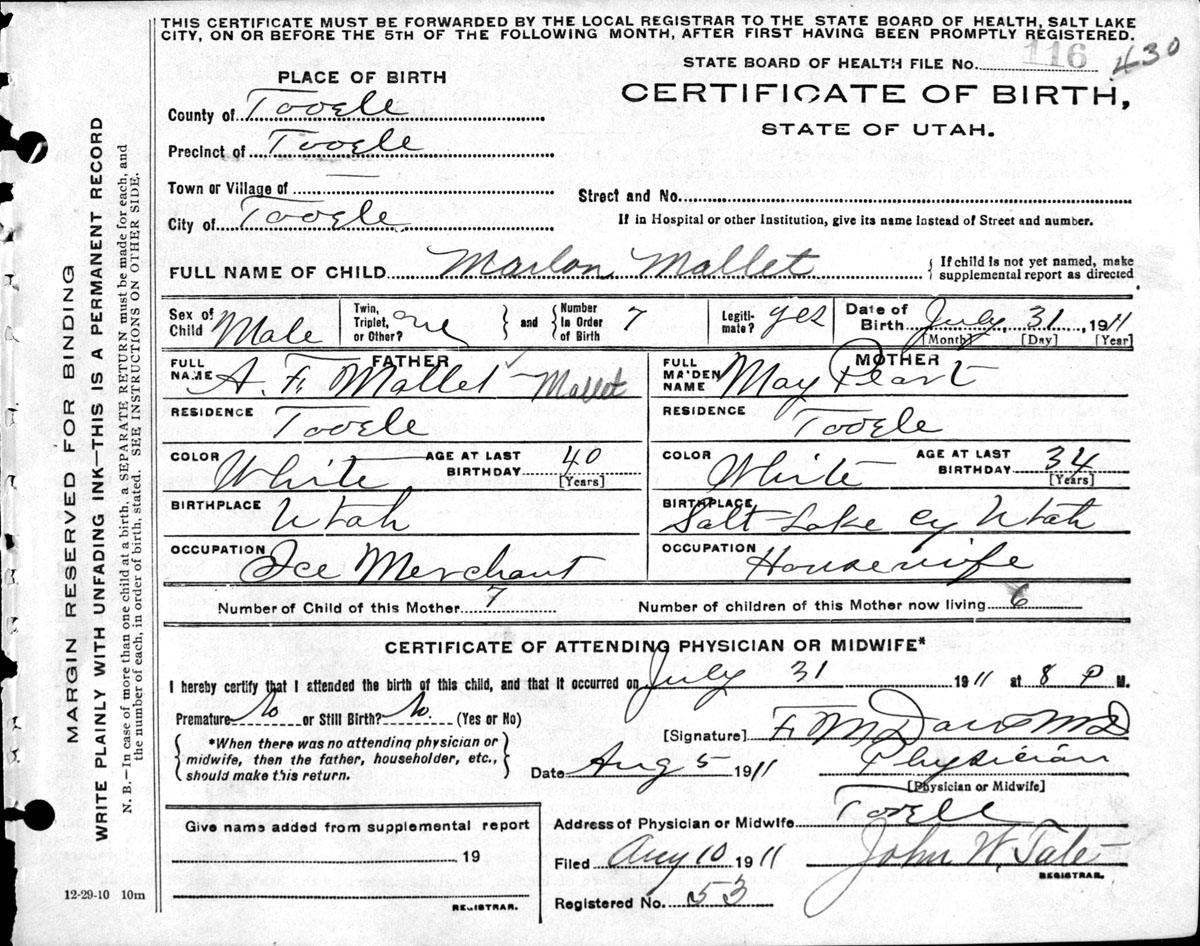 THIS CERTIFICATE MUST BE FORWARDED BY THE LOCAL REGISTRAR TO THE STATE BOARD OF HEALTH, SALT LAKE
CITY, ON OR BEFORE THE 5TH OF THE FOLLOWING MONTH, AFTER FIRST HAVING BEEN PROMPTLY REGISTERED.
STATE BOARD OF HEALTH FILE No. 116 430
PLACE OF BIRTH
CERTIFICATE OF BIRTH,
STATE OF UTAH.
County of Tooele
Precinct of Tooele
Town or Village of —
Street and No.
City of Tooele
If in Hospital or other Institution, give its name instead of Street and number.
FULL NAME OF CHILD Marlon Mallet { If child is not yet named, make supplemental report as directed
Sex of Child Male Twin, Triplet, or Other? one } and { Number in Order of Birth 7 Legiti-mate? yes Date of Birth July, 31, 1911
[Month] [Day] [Year]
FATHER MOTHER
FULL NAME A. F. Mallet Mallet FULL MAIDEN NAME May Peart
RESIDENCE Tooele RESIDENCE Tooele
COLOR White AGE AT LAST BIRTHDAY 40 [Years] COLOR White AGE AT LAST BIRTHDAY 34 [Years]
BIRTHPLACE Utah BIRTHPLACE Salt Lake Cy Utah
OCCUPATION Ice Merchant OCCUPATION Housewife
Number of Child of this Mother 7 Number of children of this Mother now living 6
CERTIFICATE OF ATTENDING PHYSICIAN OR MIDWIFE*
I hereby certify that I attended the birth of this child, and that it occurred on July 31 1911 at 8 P M.
Premature No or Still Birth? No. (Yes or No)
{ *When there was no attending physician or midwife, then the father, householder, etc., should make this return. }
[Signature] F. M. Davis MD
Date Aug 5 1911 Physician
[Physician or Midwife]
Address of Physician or Midwife Tooele
Filed Aug 10 1911 John W. Tate
REGISTRAR.
Registered No. 53
Give name added from supplemental report
19
REGISTRAR.
12-29-10 10m
MARGIN RESERVED FOR BINDING
WRITE PLAINLY WITH UNFADING INK—THIS IS A PERMANENT RECORD
N. B.—In case of more than one child at a birth, a SEPARATE RETURN must be made for each, and
the number of each, in order of birth, stated. SEE INSTRUCTIONS ON OTHER SIDE.